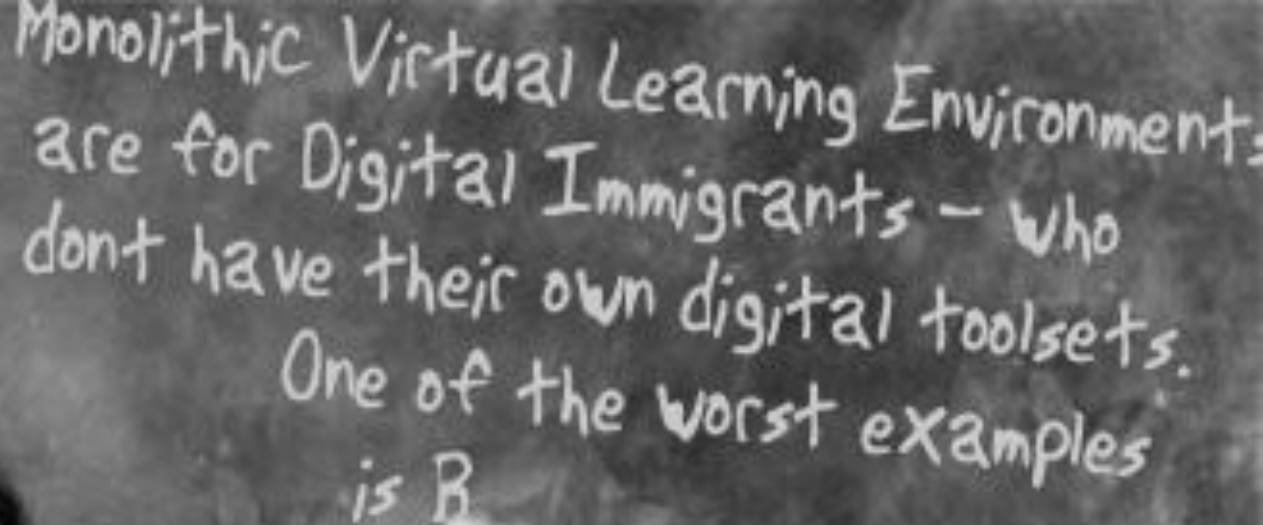 Monolithic Virtual Learning Environments
are for Digital Immigrants - who
dont have their own digital toolsets.
One of the worst examples
is B